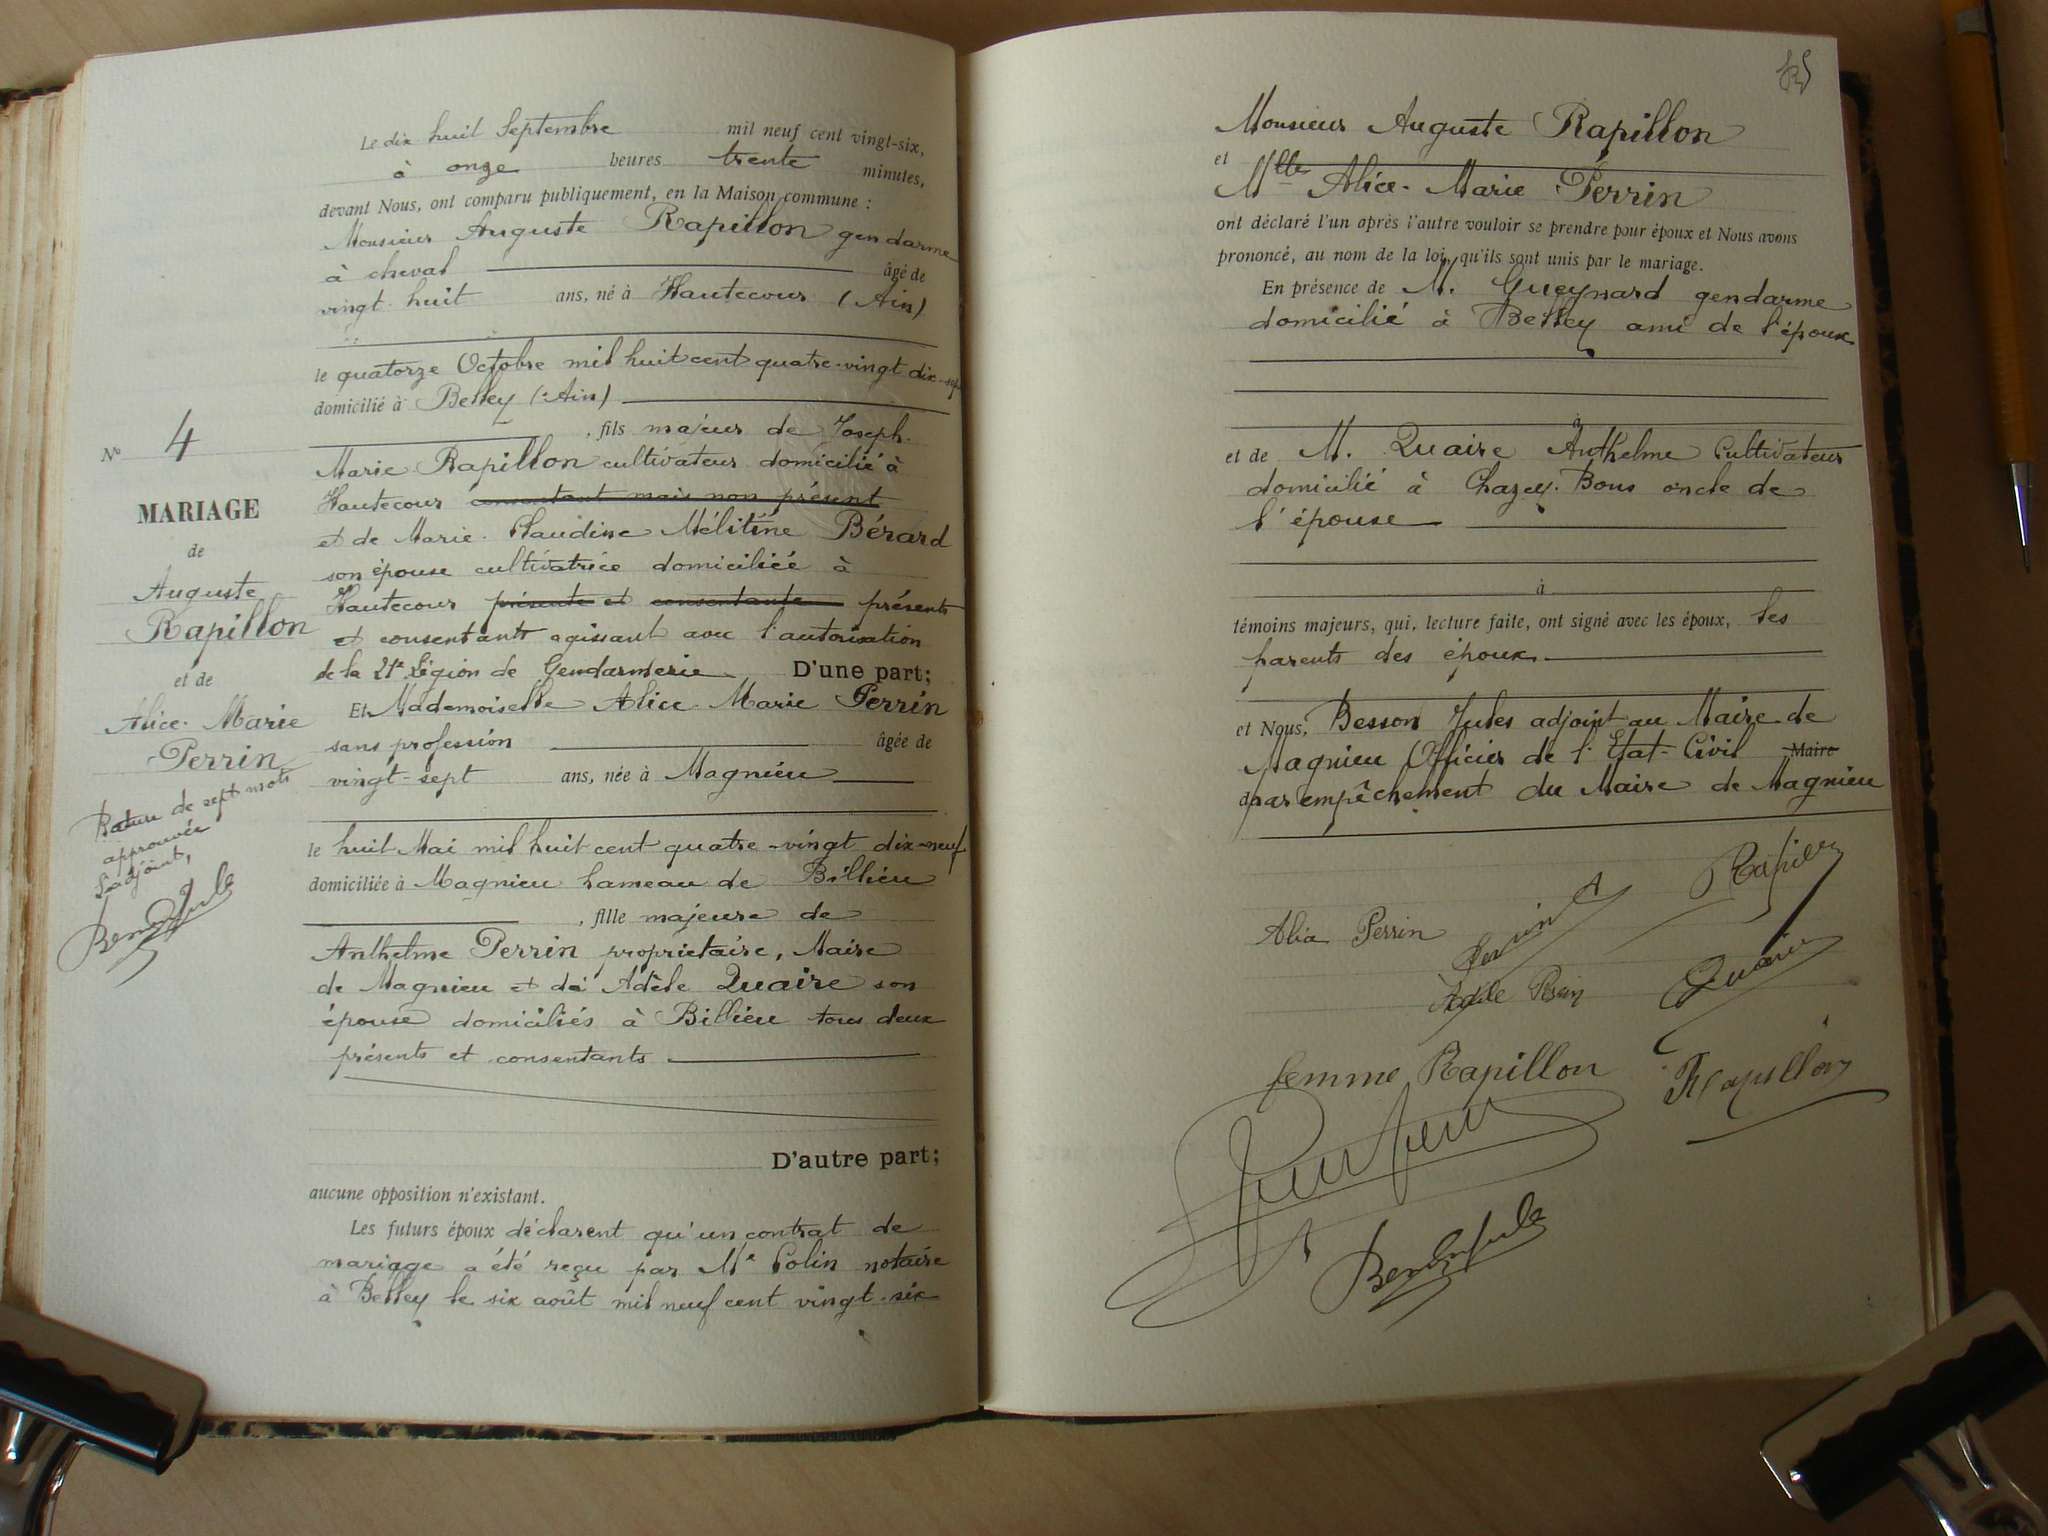 Le dix huit Septembre mil neuf cent vingt-six,
à onze heures trente minutes,
devant Nous, ont comparu publiquement, en la Maison commune :
Monsieur Auguste Rapillon gendarme
à cheval âgé de
vingt huit ans, né à Hautecour (Ain)
le quatorze Octobre mil huit cent quatre-vingt dix-sept
domicilié à Belley (Ain)
, fils majeur de Joseph-
Marie Rapillon cultivateur domicilié à
Hautecour consentant mais non présent
et de Marie Claudine Mélitine Bérard
son épouse cultivatrice domiciliée à
Hautecour présente et consentante présents
et consentants agissant avec l'autorisation
de la 21e Légion de Gendarmerie D'une part;
Et Mademoiselle Alice-Marie Perrin
sans profession âgée de
vingt-sept ans, née à Magnieu
le huit Mai mil huit cent quatre-vingt dix-neuf
domiciliée à Magnieu hameau de Billieu
, fille majeure de
Anthelme Perrin propriétaire, Maire
de Magnieu et de Adèle Quaire son
épouse domiciliés à Billieu tous deux
présents et consentants
D'autre part;
aucune opposition n'existant.
Les futurs époux déclarent qu'un contrat de
mariage a été reçu par Me Colin notaire
à Belley le six août mil neuf cent vingt-six
No 4
MARIAGE
de
Auguste
Rapillon
et de
Alice-Marie
Perrin
Rature de sept mots
approuvée
L'adjoint,
Besson Jules
Monsieur Auguste Rapillon
et
Mlle Alice-Marie Perrin
ont déclaré l'un après l'autre vouloir se prendre pour époux et Nous avons
prononcé, au nom de la loi, qu'ils sont unis par le mariage.
En présence de M. Gueynard gendarme
domicilié à Belley ami de l'époux
à
et de M. Quaire Anthelme Cultivateur
domicilié à Chazey-Bons oncle de
l'épouse
à
témoins majeurs, qui, lecture faite, ont signé avec les époux, les
parents des époux
et Nous, Besson Jules adjoint au Maire de
Magnieu Officier de l'Etat-Civil Maire
d par empêchement du Maire de Magnieu
Rapillon
Alice Perrin
Perrin A
Adèle Perrin
Quaire
femme Rapillon
Rapillon
Besson Jules